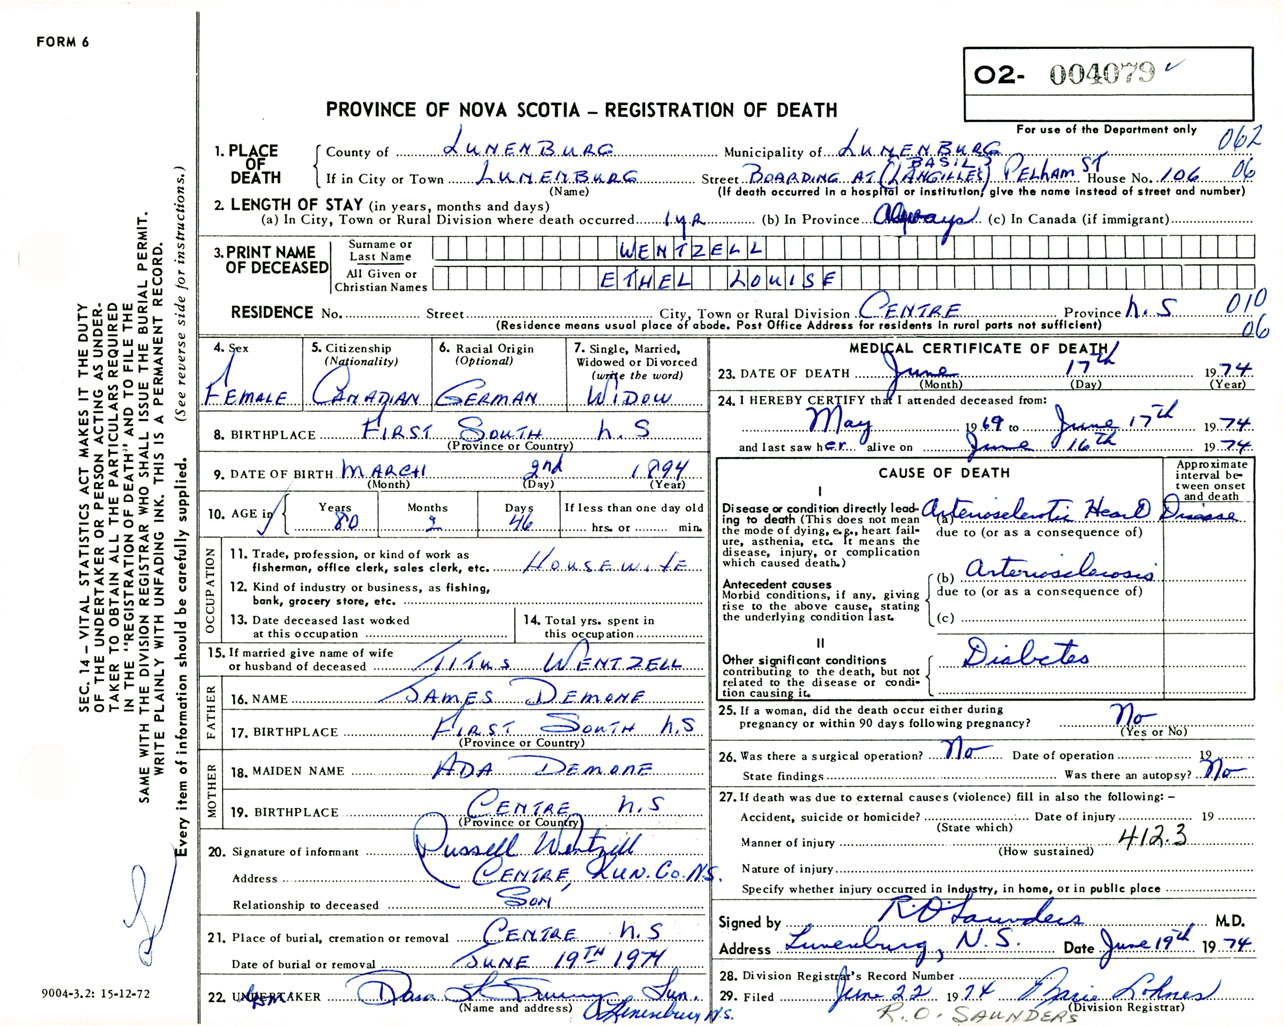 FORM 6
O2- 004079 ✓
PROVINCE OF NOVA SCOTIA – REGISTRATION OF DEATH
For use of the Department only
062
06
1. PLACE OF DEATH
County of LUNENBURG Municipality of LUNENBURG
If in City or Town LUNENBURG Street BOARDING AT (BASIL LANGILLES) PELHAM ST House No. 106
(Name) (If death occurred in a hospital or institution, give the name instead of street and number)
2. LENGTH OF STAY (in years, months and days)
(a) In City, Town or Rural Division where death occurred 1 yR (b) In Province Always (c) In Canada (if immigrant)
3. PRINT NAME OF DECEASED
Surname or Last Name WENTZELL
All Given or Christian Names ETHEL LOUISE
RESIDENCE No. Street City, Town or Rural Division CENTRE Province N.S
010
06
(Residence means usual place of abode. Post Office Address for residents in rural parts not sufficient)
4. Sex
FEMALE
5. Citizenship
(Nationality)
CANADIAN
6. Racial Origin
(Optional)
GERMAN
7. Single, Married,
Widowed or Divorced
(write the word)
WIDOW
8. BIRTHPLACE FIRST SOUTH N.S
(Province or Country)
9. DATE OF BIRTH MARCH 2nd 1894
(Month) (Day) (Year)
10. AGE in
Years 80
Months 2
Days 46
If less than one day old
hrs. or min.
OCCUPATION
11. Trade, profession, or kind of work as
fisherman, office clerk, sales clerk, etc. HOUSEWIFE
12. Kind of industry or business, as fishing,
bank, grocery store, etc.
13. Date deceased last worked
at this occupation
14. Total yrs. spent in
this occupation
15. If married give name of wife
or husband of deceased TITUS WENTZELL
FATHER
16. NAME JAMES DEMONE
17. BIRTHPLACE FIRST SOUTH N.S
(Province or Country)
MOTHER
18. MAIDEN NAME ADA DEMONE
19. BIRTHPLACE CENTRE N.S
(Province or Country)
20. Signature of informant Russell Wentzell
Address CENTRE, LUN. CO. N.S.
Relationship to deceased SON
21. Place of burial, cremation or removal CENTRE N.S
Date of burial or removal JUNE 19TH 1974
22. UNDERTAKER
(Name and address)
Lunenburg N.S.
MEDICAL CERTIFICATE OF DEATH
23. DATE OF DEATH June 17th 1974
(Month) (Day) (Year)
24. I HEREBY CERTIFY that I attended deceased from:
May 1969 to June 17th 1974
and last saw her alive on June 16th 1974
CAUSE OF DEATH
Approximate
interval be-
tween onset
and death
I
Disease or condition directly lead-
ing to death (This does not mean
the mode of dying, e.g., heart fail-
ure, asthenia, etc. It means the
disease, injury, or complication
which caused death.)
(a) Arteriosclerotic Heart Disease
due to (or as a consequence of)
Antecedent causes
Morbid conditions, if any, giving
rise to the above cause, stating
the underlying condition last.
(b) Arteriosclerosis
due to (or as a consequence of)
(c)
II
Other significant conditions
contributing to the death, but not
related to the disease or condi-
tion causing it.
Diabetes
25. If a woman, did the death occur either during
pregnancy or within 90 days following pregnancy? No
(Yes or No)
26. Was there a surgical operation? No Date of operation 19
State findings Was there an autopsy? No
27. If death was due to external causes (violence) fill in also the following: –
Accident, suicide or homicide? Date of injury 19
(State which)
Manner of injury 412.3
(How sustained)
Nature of injury
Specify whether injury occurred in Industry, in home, or in public place
Signed by R.O. Saunders M.D.
Address Lunenburg, N.S. Date June 19th 1974
28. Division Registrar's Record Number
29. Filed June 22 1974
(Division Registrar)
R.O. SAUNDERS
SEC. 14 – VITAL STATISTICS ACT MAKES IT THE DUTY
OF THE UNDERTAKER OR PERSON ACTING AS UNDER-
TAKER TO OBTAIN ALL THE PARTICULARS REQUIRED
IN THE "REGISTRATION OF DEATH" AND TO FILE THE
SAME WITH THE DIVISION REGISTRAR WHO SHALL ISSUE THE BURIAL PERMIT.
WRITE PLAINLY WITH UNFADING INK. THIS IS A PERMANENT RECORD.
Every item of information should be carefully supplied. (See reverse side for instructions.)
9004-3.2: 15-12-72